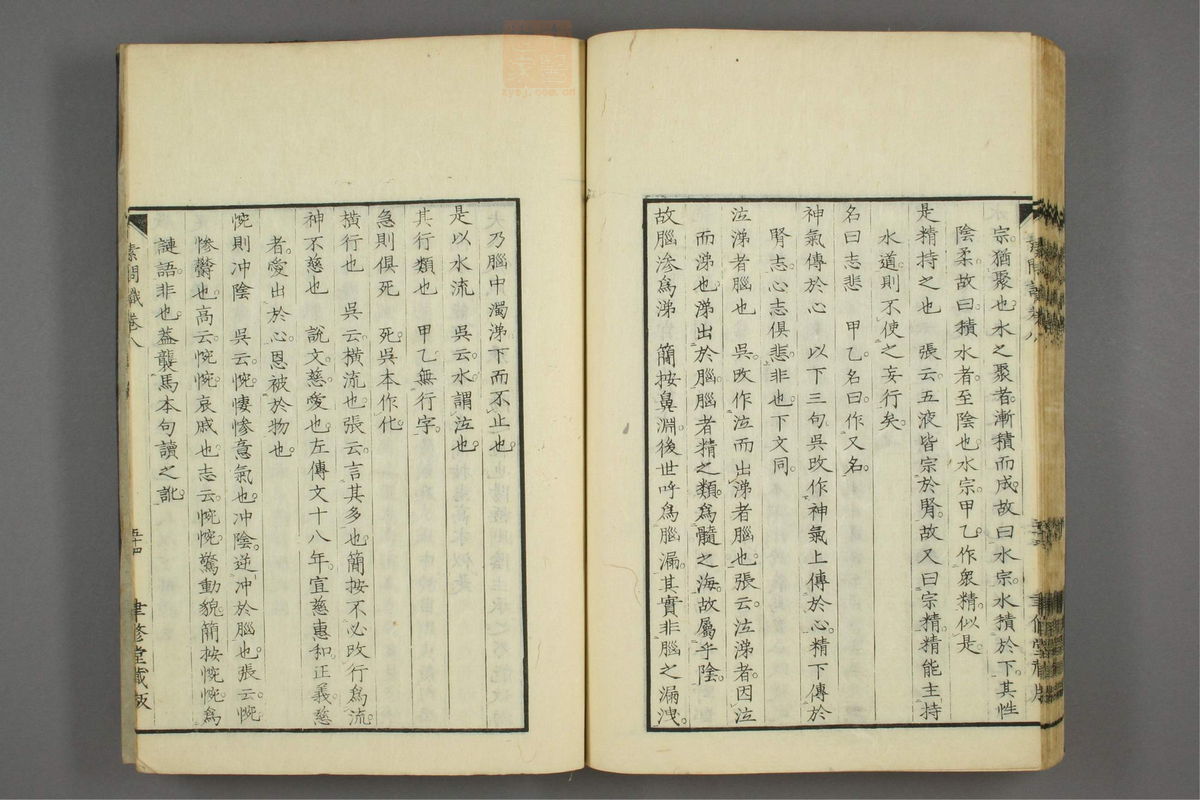 宗猶聚也水之聚者漸積而成故曰水宗水積於下其性
陰柔故曰積水者至陰也水宗甲乙作衆精似是
是精持之也 張云五液皆宗於腎故又曰宗精精能主持
水道則不使之妄行矣
名曰志悲 甲乙名曰作又名
神氣傳於心 以下三句吳改作神氣上傳於心精下傳於
腎志心志俱悲非也下文同
泣涕者腦也 吳改作泣而出涕者腦也張云泣涕者因泣
而涕也涕出於腦腦者精之類爲髓之海故屬乎陰
故腦滲爲涕 簡按鼻淵後世呼爲腦漏其實非腦之漏洩
夫乃腦中濁涕下而不止也
是以水流 吳云水謂泣也
其行類也 甲乙無行字
急則俱死 死吳本作化
橫行也 吳云橫流也張云言其多也簡按不必改行爲流
神不慈也 說文慈愛也左傳文十八年宣慈惠和正義慈
者愛出於心恩被於物也
惋則冲陰 吳云惋悽慘意氣也冲陰逆冲於腦也張云惋
慘鬱也高云惋惋哀戚也志云惋惋驚動貌簡按惋惋爲
謰語非也蓋襲馬本句讀之訛
素問識卷八
五十四
聿修堂藏版
zysj.com.cn